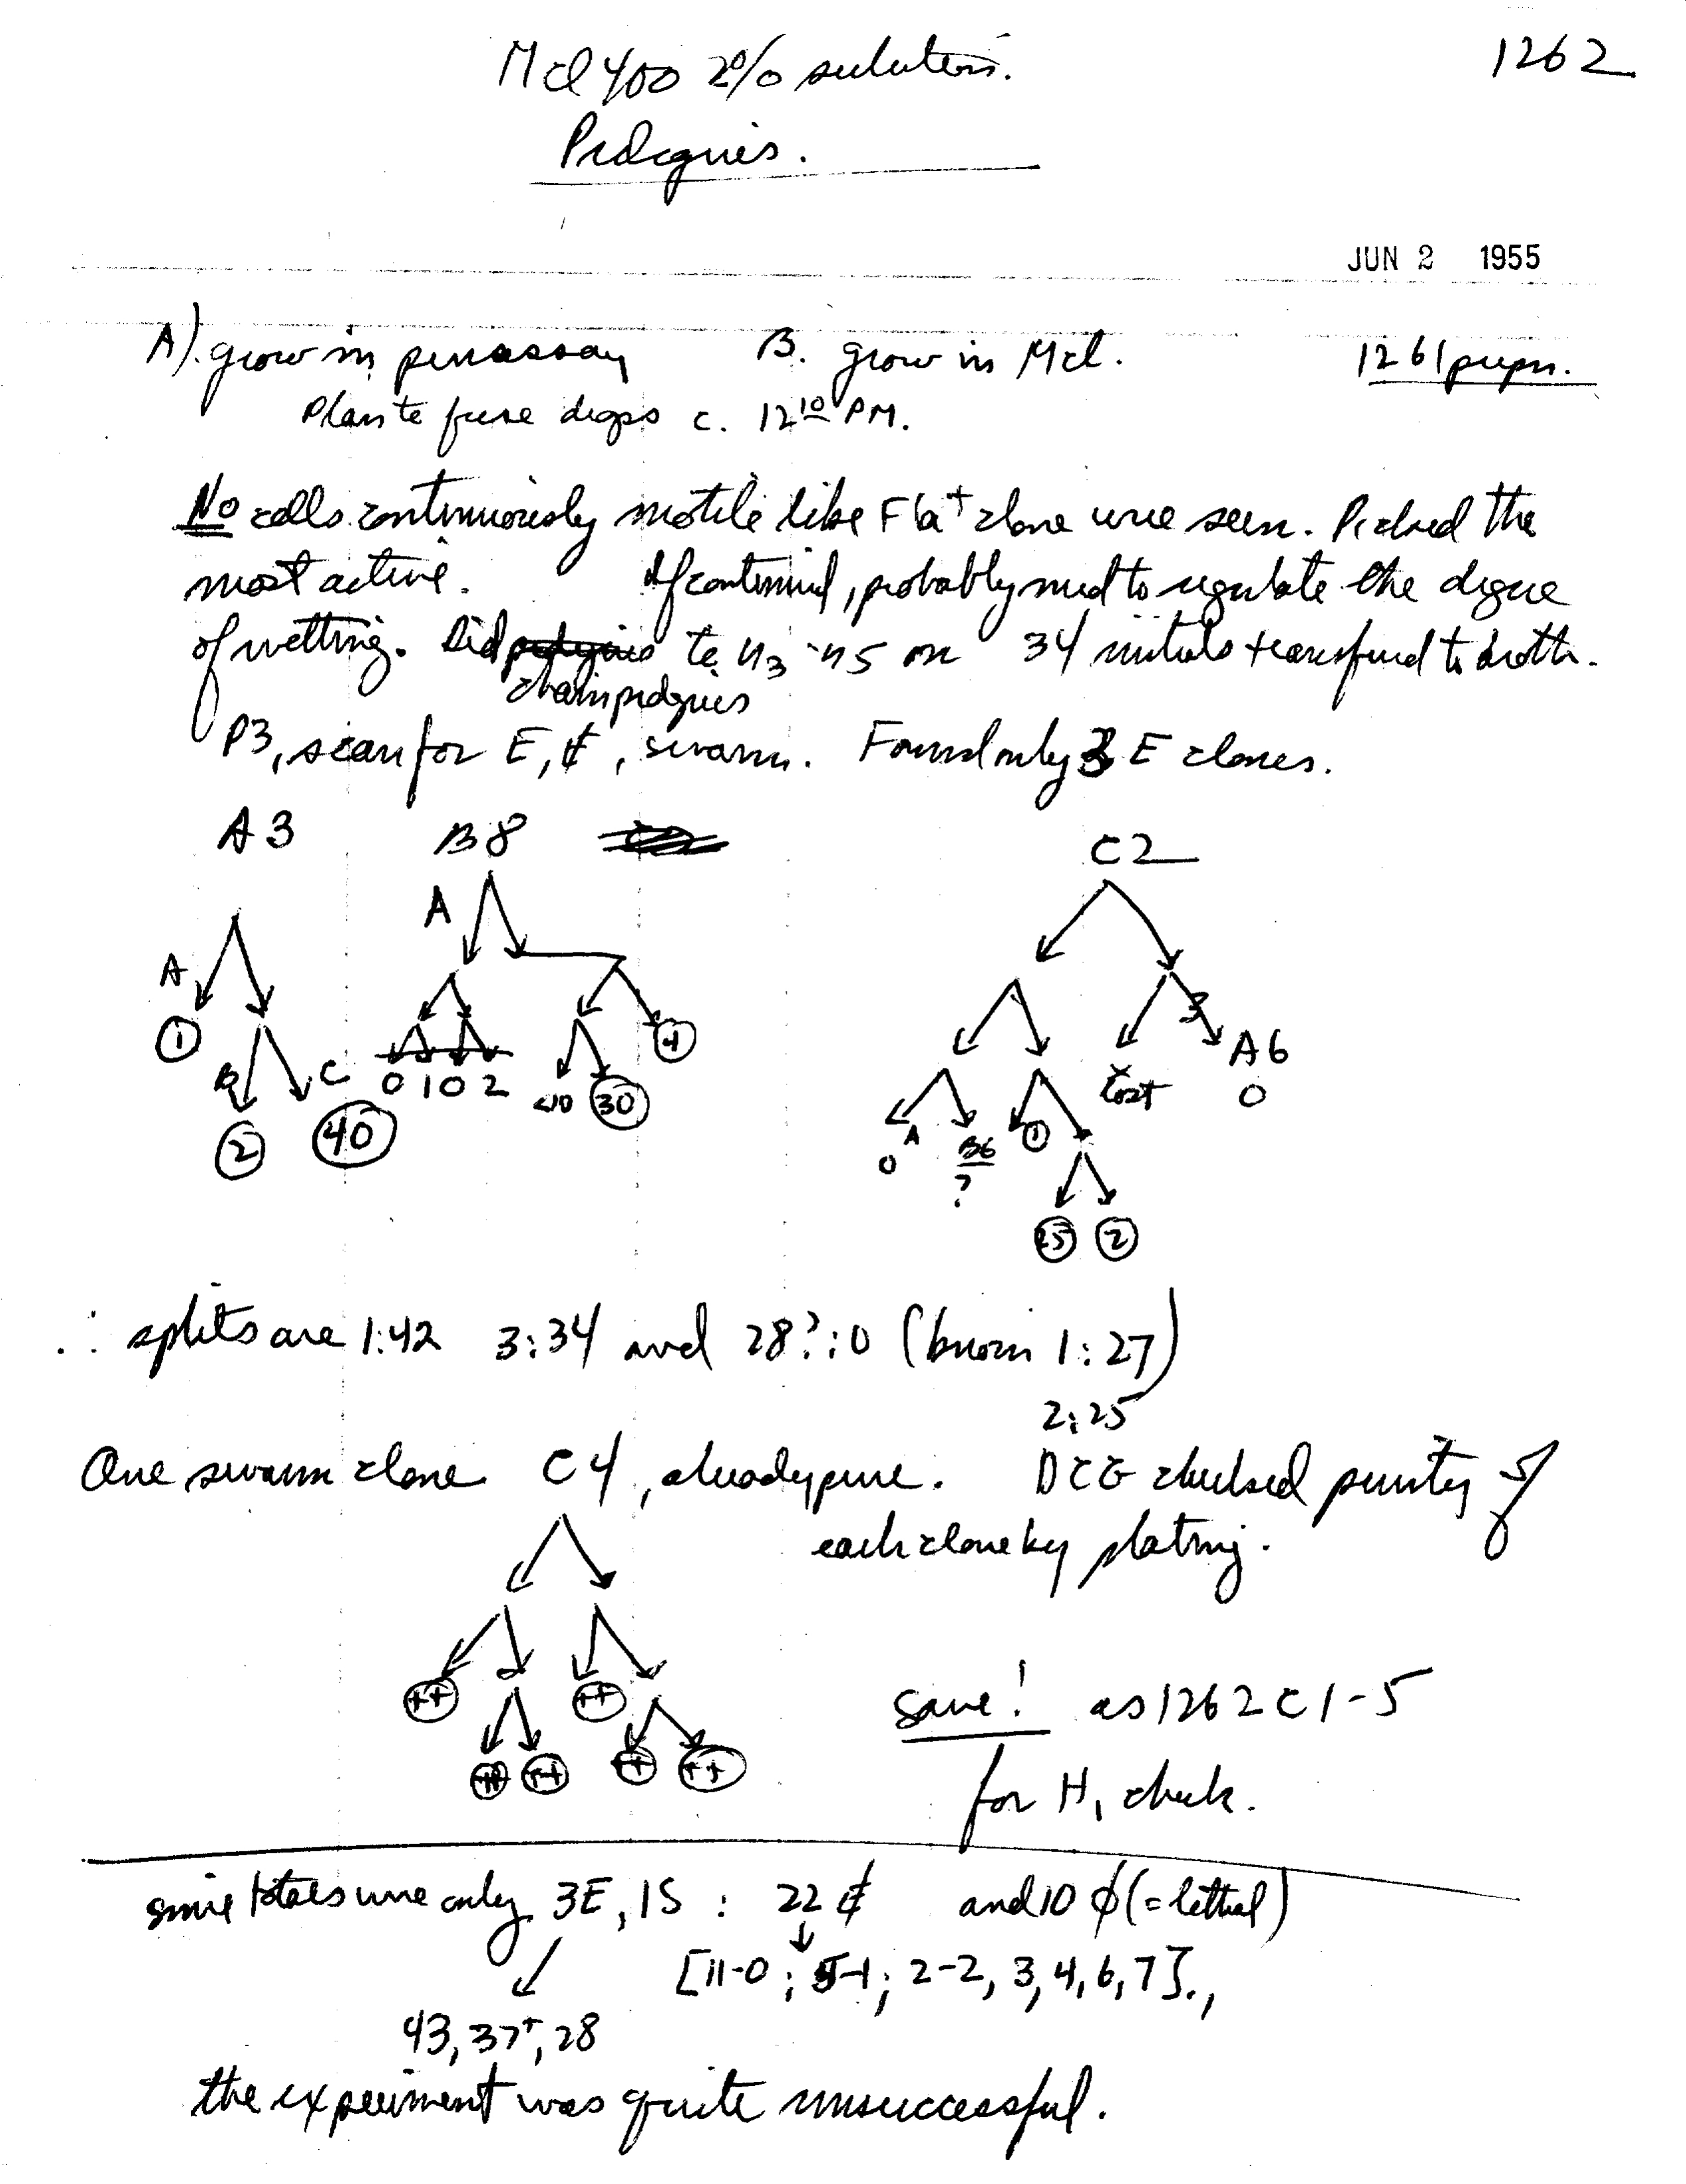 Mcl 400 2% solution.
1262
Pedigrees.
JUN 2 1955
A). grow in penassay B. grow in Mcl. 1261 prepn.
Plan to fuse drops c. 12 10 PM.
No cells continuously motile like Fla+ clone were seen. Picked the
most active. If continued, probably need to regulate the degree
of wetting. Did to n3-n5 on 34 initials transferred to broth.
chain pedigrees
P3, scan for E, ¢, swarm. Found only 3 E clones.
A3 B8 C2
A
A
1
B C
2 40
0 1 0 2 <10 30 4
3
A6
0
Lost
A
0
B6
?
1
25 2
∴ splits are 1:42 3:34 and 28?:0 (known 1:27)
2:25
One swarm clone C4, already pure. DCG checked purity of
each clone by plating.
++ ++
++ ++ ++ ++
Save! as 1262 C1-5
for H, check.
since totals were only 3E, 1S : 22 ¢ and 10 ϕ (= lethal)
[11-0; 5-1; 2-2, 3, 4, 6, 7].,
43, 37+, 28
the experiment was quite unsuccessful.